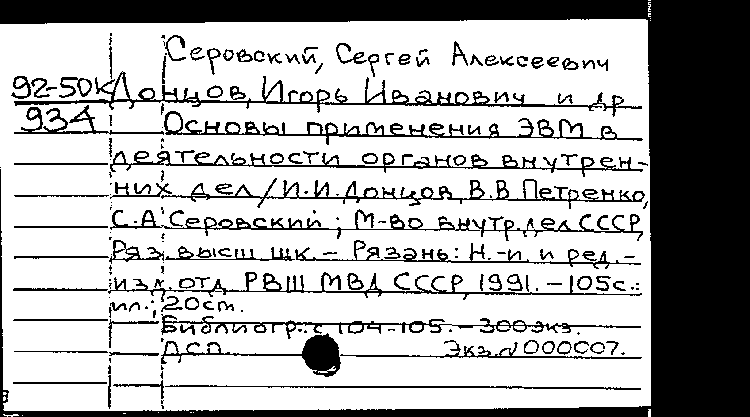 Серовский, Сергей Алексеевич
92-50к Донцов, Игорь Иванович и др
934 Основы применения ЭВМ в
деятельности органов внутрен-
них дел/И.И.Донцов, В.В Петренко,
С.А.Серовский; М-во внутр.дел СССР,
Ряз. высш шк. - Рязань: Н.-и. и ред.-
изд. отд РВШ МВД СССР, 1991. - 105с.:
ил.; 20см.
Библиогр.: с 104-105. - 300экз.
ДСП. Экз.N000007.